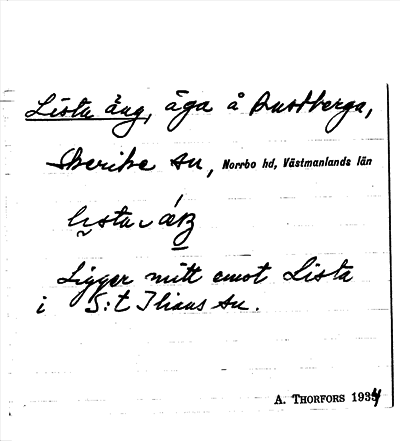 Lista äng, äga å Rustberga,
Skerike sn, Norrbo hd, Västmanlands län
Ligger mitt emot Lista
i S:t Ilians sn.
A. THORFORS 1934